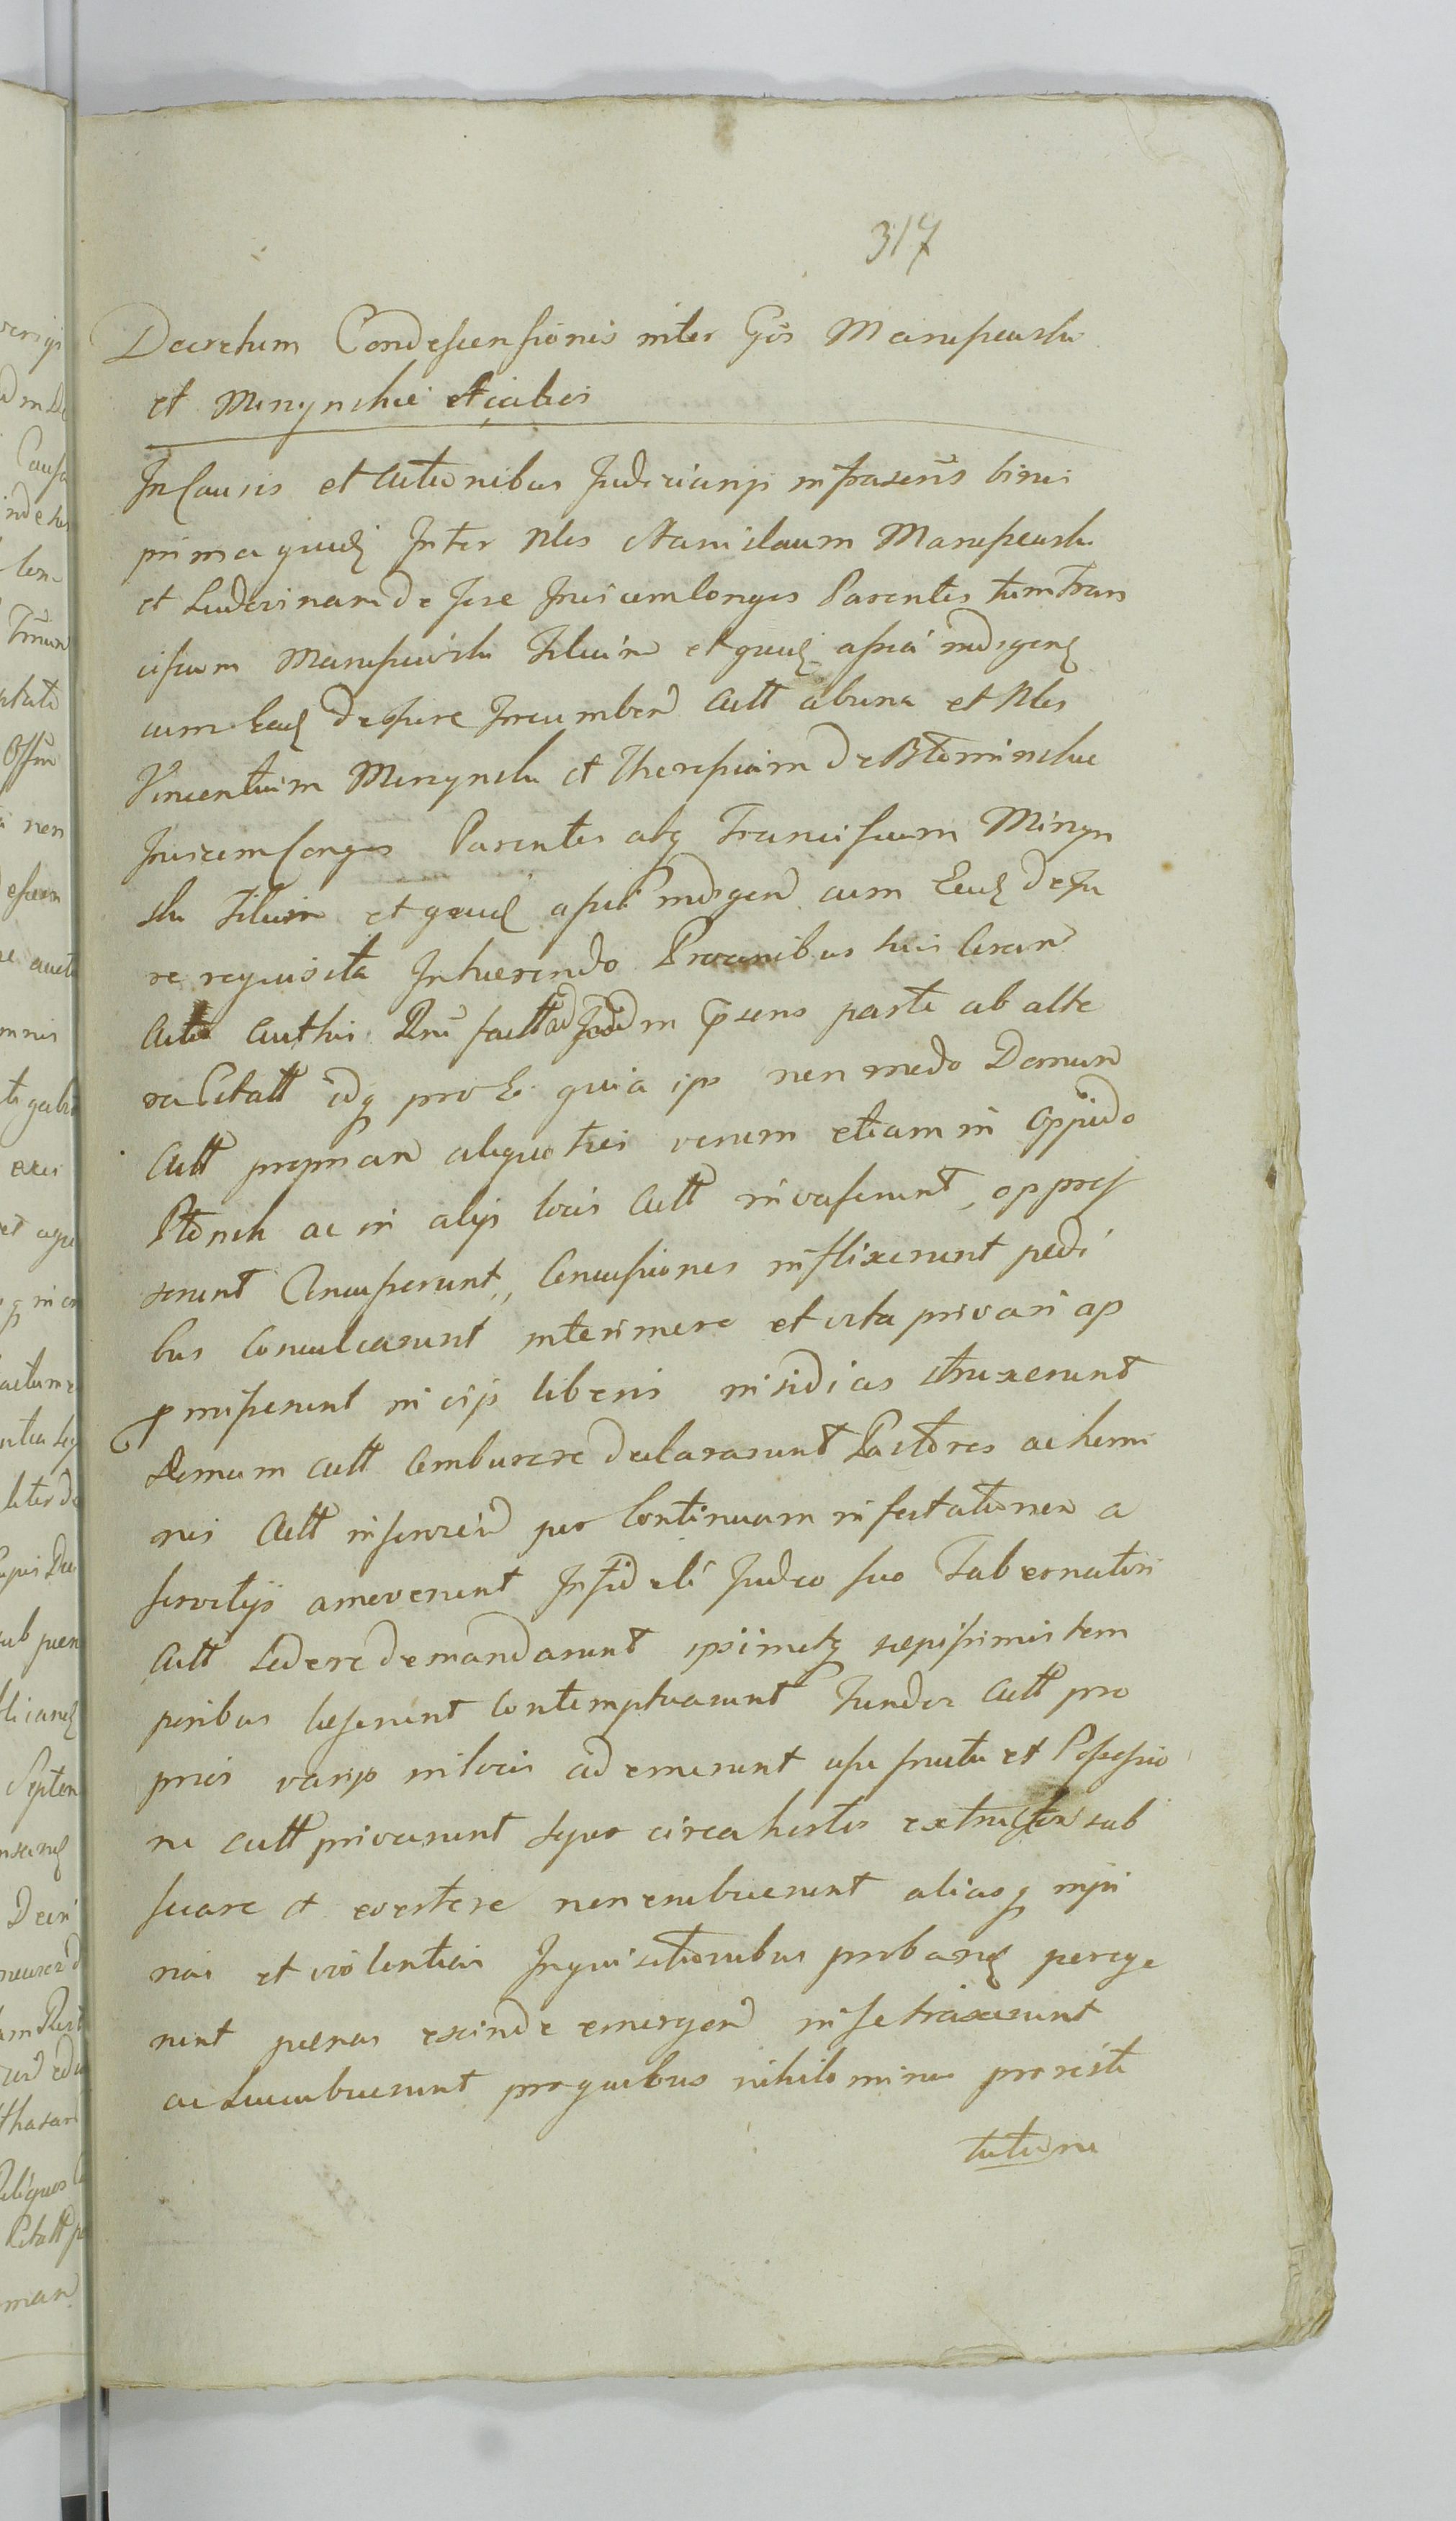 317
Decretum Condescensionis inter Gos Marusewski
et Minynskie et alios
In Causis et Actionibus Judiciarijs infrascris binis
prima quidẽ Inter Nbles Stanislaum Marusewski
et Ludovinam de Jere Invicem Conges Parentes tum Fran
ciscum Marusewski Filium et quidẽ assia indigenẽ
cum Eadẽ de Jure Incumbend Actt ab una et Nbles
Vincentium Minynski et Theresiam de Btominskie
Invicem Conges Parentes atq Franciscum Minyn
ski Filium et quid assia indigend cum Eadẽ de Ju
re requisita Inhaerendo Processibus suis Coram
Actis Authis factt ad Judm psens parte ab alte
ra Citatt idq pro Eo quia ips non modo Domum
Actt propriam aliquoties verum etiam in oppido
Ptonsk ac in alijs locis Actt invaserunt, oppres
serunt Concusserunt, Concussiones inflixerunt pedi
bus Conculcarunt interimere et vita privari ap
promiserunt in vijs liberis insidias struxerunt
domum Actt Comburere declararunt Pastores ac homi
nes Actt inserviend per Continuam infestationem a
servitijs amoverunt Infideli Judeo suo Tabernatori
Actt Ledere demandarunt ipsimetq sepissimis tem
poribus leserunt Contemptuarunt Fundos Actt pro
prios varijs in locis ademerunt usu fructu et Possessio
ne Actt privarunt Sepes circa hortos extructos sub
secare et evertere non erubuerunt aliasq inju
rias et violentias Inquisitionibus probanẽ perege
runt paenas exinde emergend in se traxerunt
ac Succubuerunt pro quibus nihilominus pro resti
tutione